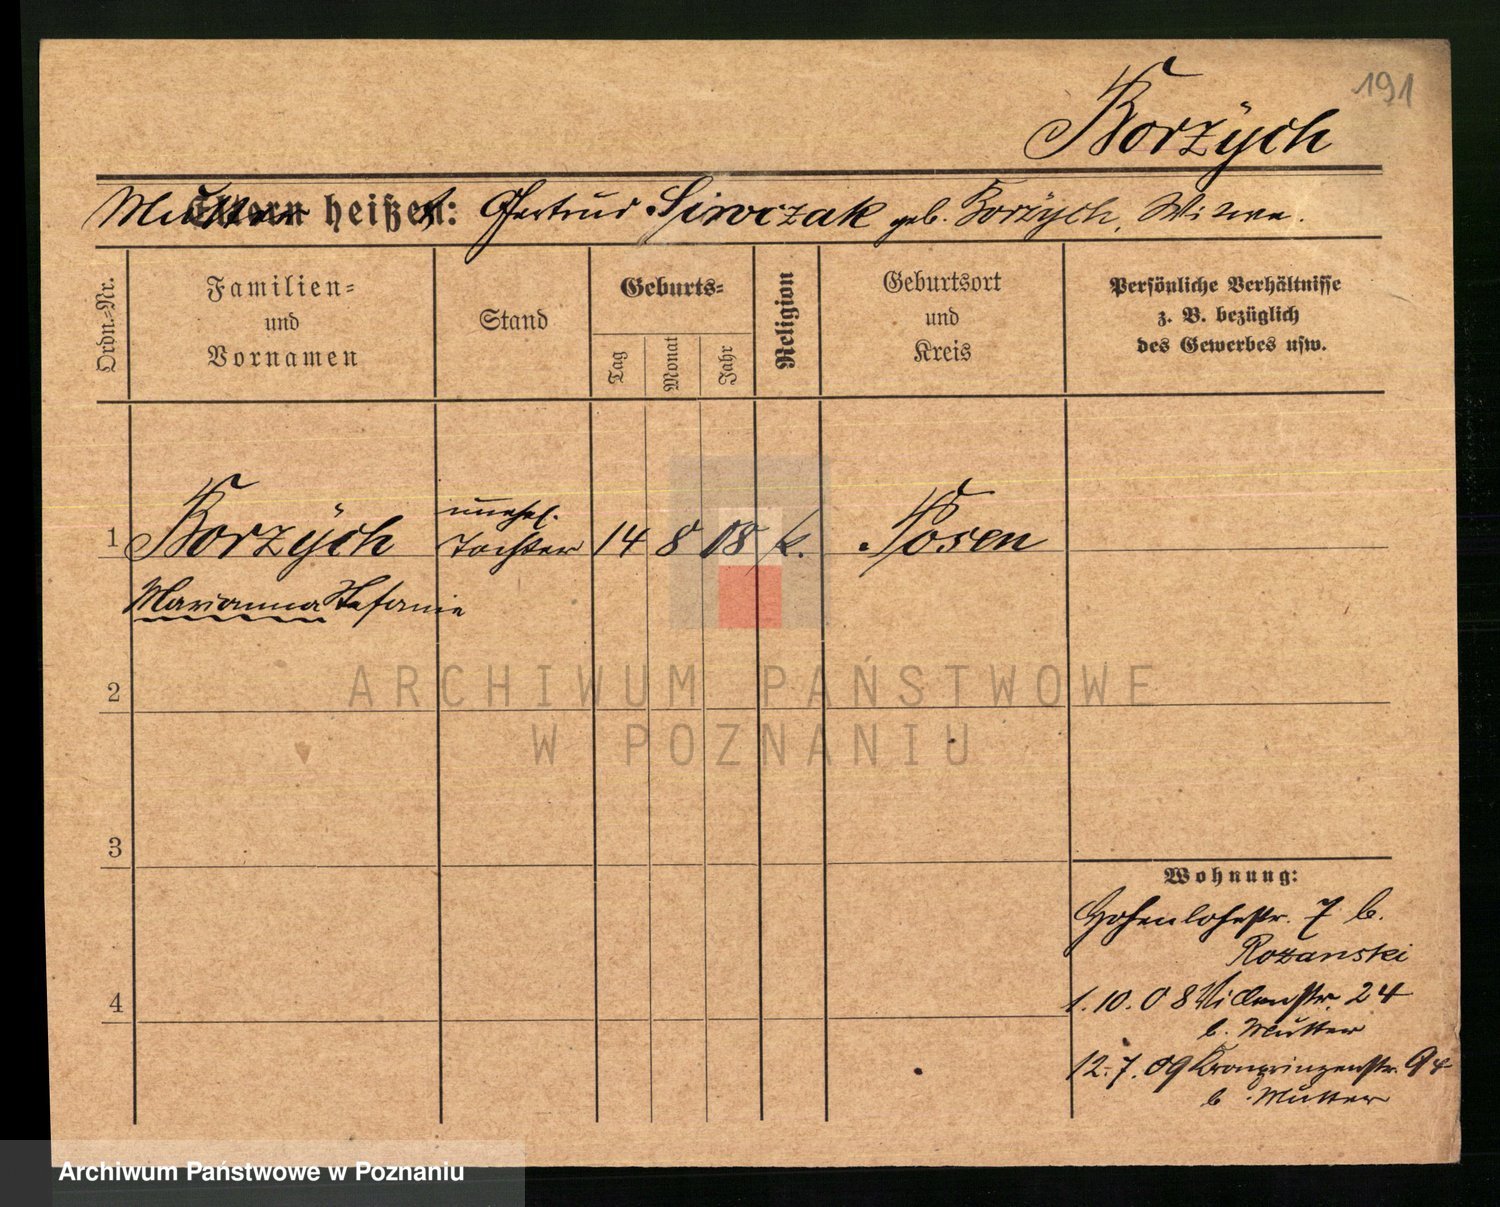 191
Borzÿch
Mutter
Eltern heißen: Gertrud Siwczak geb. Borzÿch, Witwe.
Ordn.-Nr.
Familien-
und
Vornamen
Stand
Geburts-
Tag
Monat
Jahr
Religion
Geburtsort
und
Kreis
Persönliche Verhältnisse
z. B. bezüglich
des Gewerbes usw.
1
Borzÿch
unehel.
Tochter
14 8 08 k. Posen
Marianna Stefanie
ARCHIWUM PAŃSTWOWE
W POZNANIU
2
3
4
Wohnung:
Hohenlohestr. 7 b.
Rozanski
1.10.08 24
b. Mutter
12.7.09 Kronprinzenstr. 94
b. Mutter
Archiwum Państwowe w Poznaniu